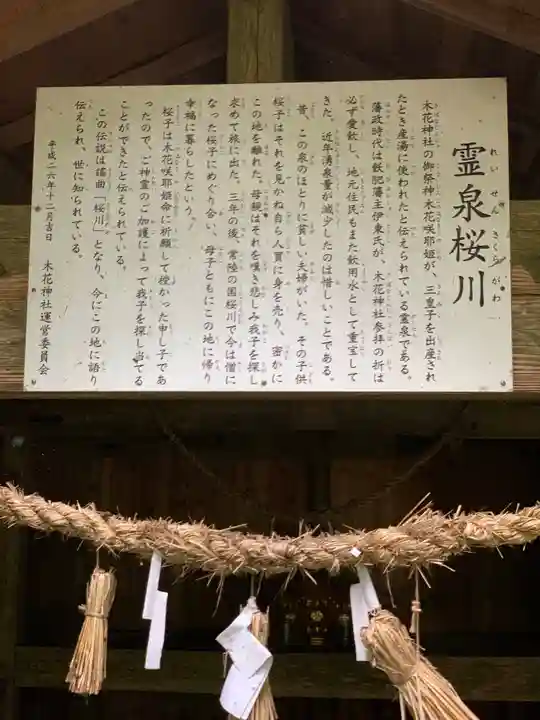 霊泉桜川
れいせんさくらがわ
木花神社の御祭神木花咲耶姫が、三皇子を出産され
たとき産湯に使われたと伝えられている霊泉である。
藩政時代は飫肥藩主伊東氏が、木花神社参拝の折は
必ず愛飲し、地元住民もまた飲用水として重宝して
きた。近年湧泉量が減少したのは惜しいことである。
昔、この泉のほとりに貧しい夫婦がいた。その子供
桜子はそれを見かね自ら人買に身を売り、密かに
この地を離れた。母親はそれを嘆き悲しみ我子を探し
求めて旅に出た。三年の後、常陸の国桜川で今は僧に
なった桜子にめぐり合い、母子ともにこの地に帰り
幸福に暮らしたという。
桜子は木花咲耶姫命に祈願して授かった申し子であ
ったので、ご神霊のご加護によって我子を探し当てる
ことができたと伝えられている。
この伝説は謡曲「桜川」となり、今にこの地に語り
伝えられ、世に知られている。
平成二六年十二月吉日 木花神社運営委員会